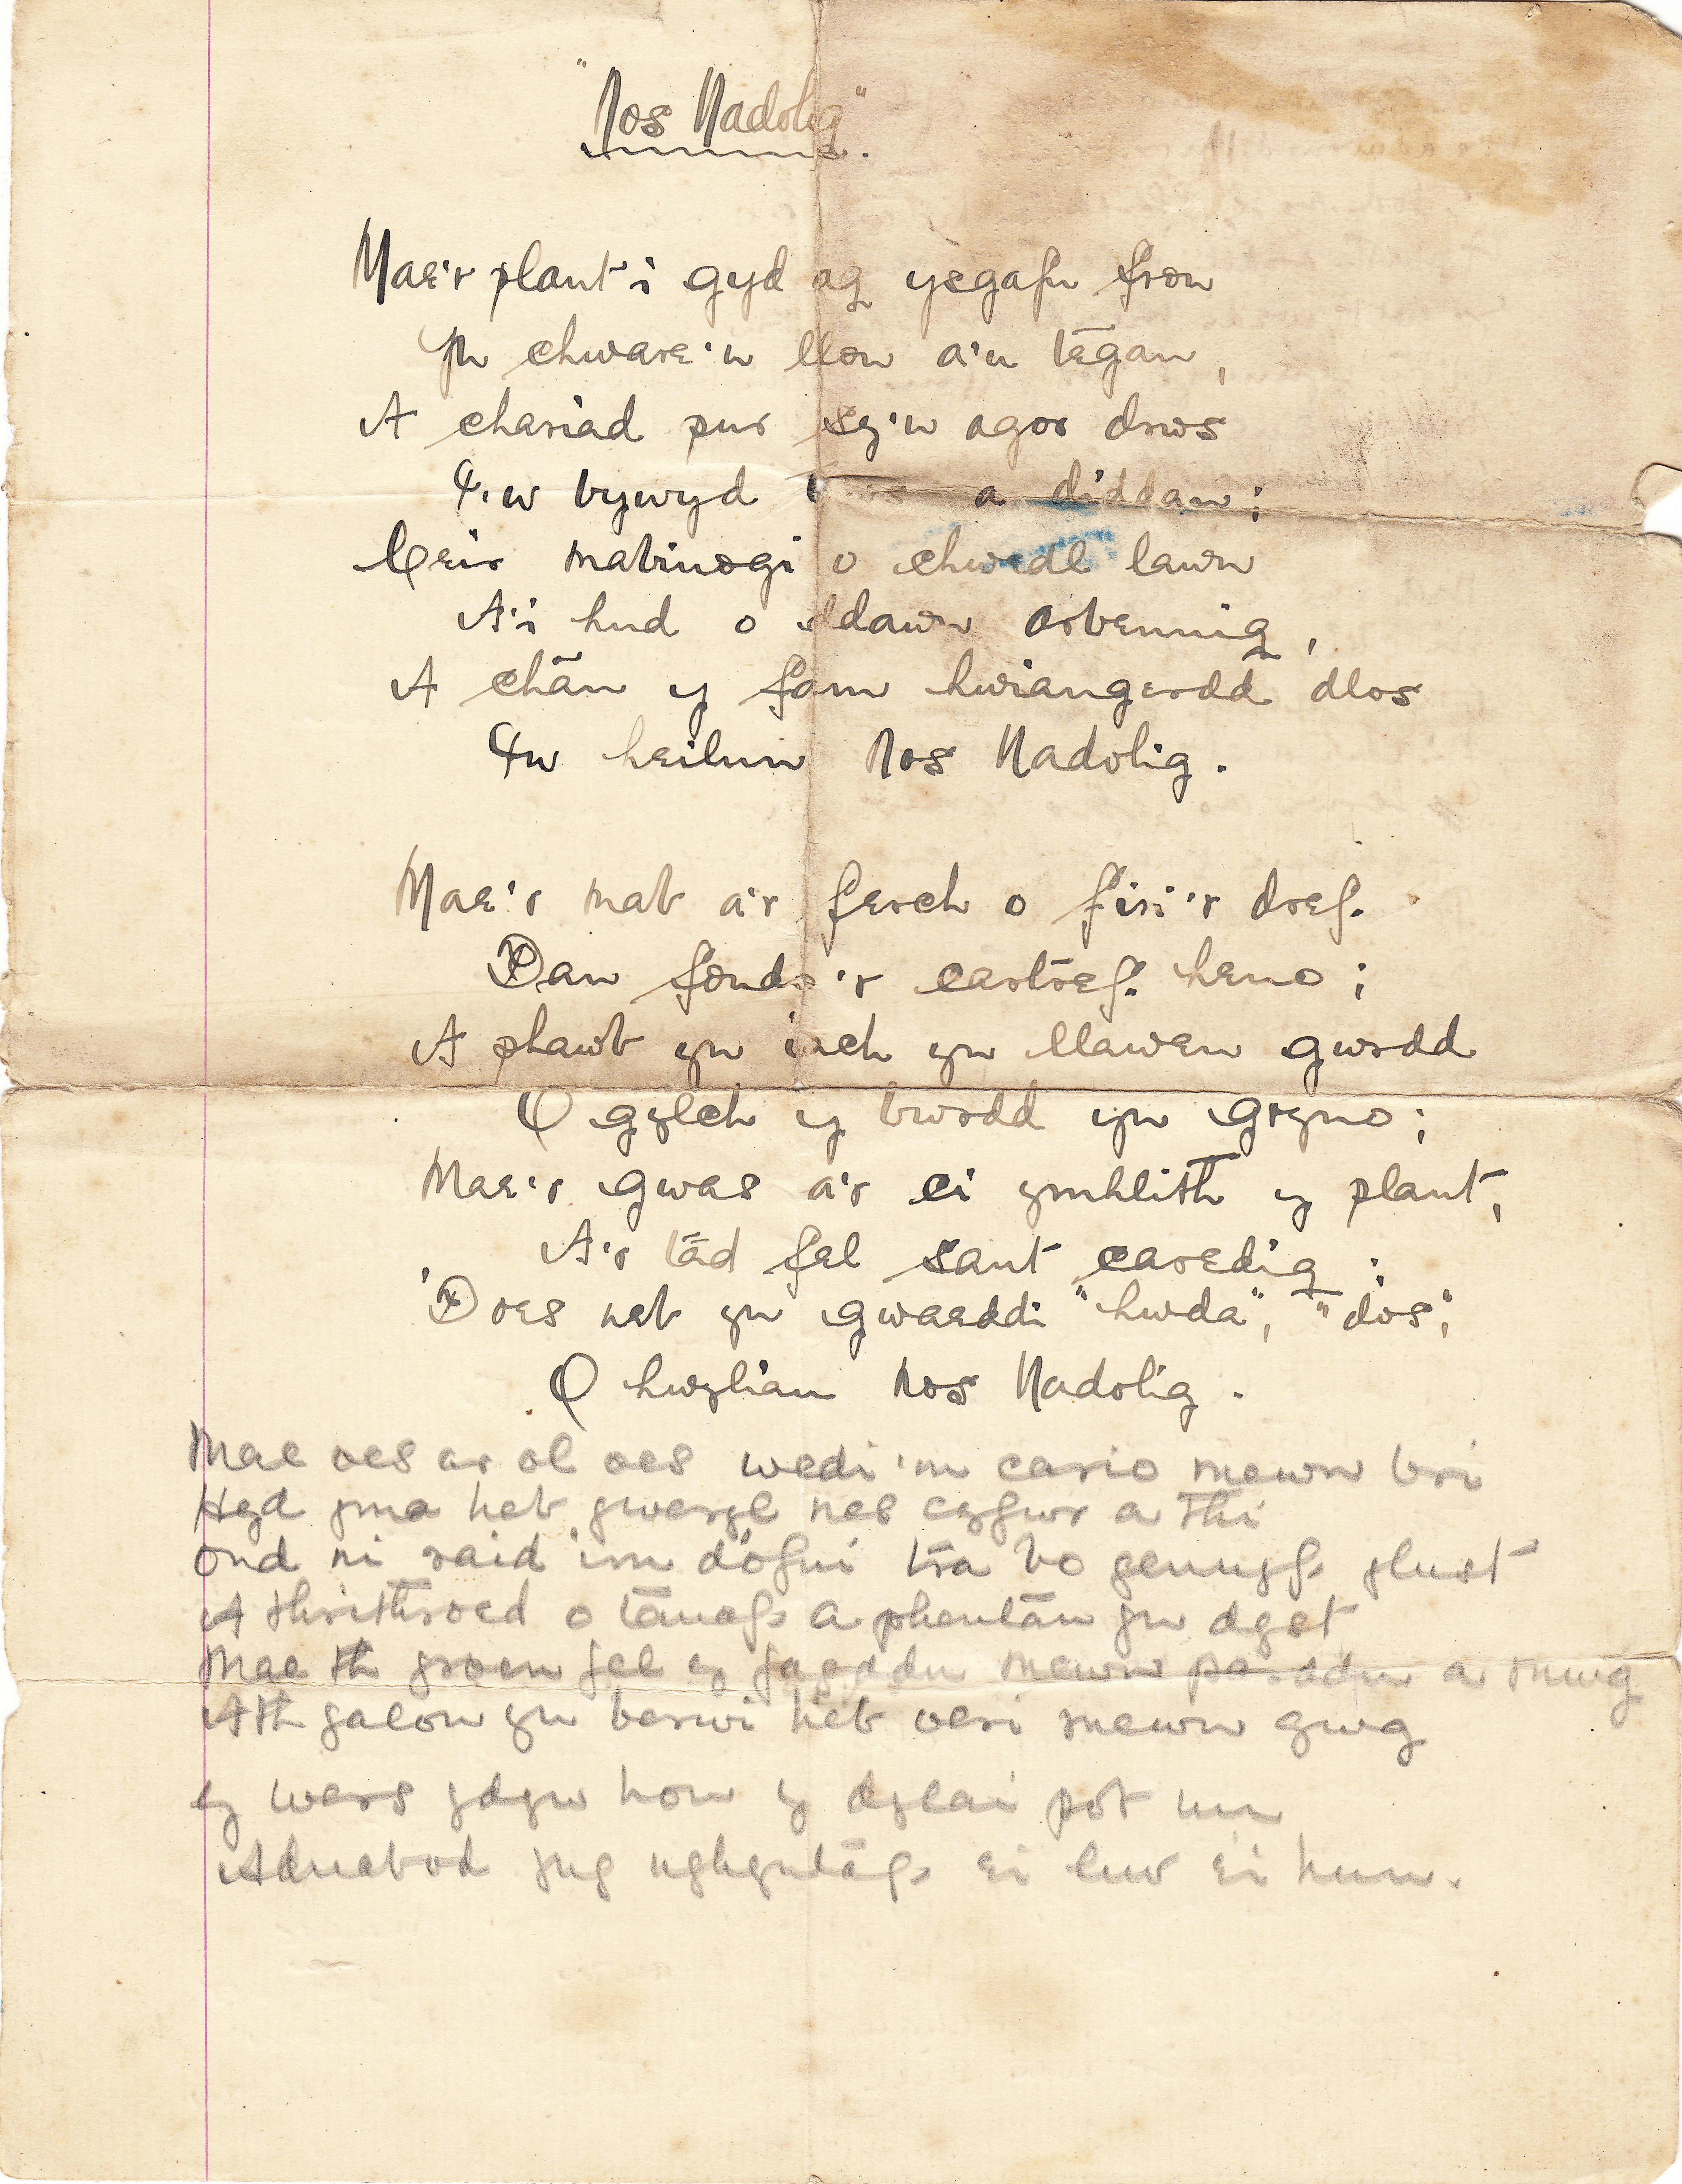 "Nos Nadolig".
Mae'r plant i gyd ag ysgafn fron
Yn chware'n llon a'u tēgan,
A chariad pur sy'n agor drws
I'w bywyd a diddan;
Ceir mabinogi o chwedl lawn
A'i hud o ddawn arbennig,
A chān y fam hwiangerdd dlos
Yw heilun Nos Nadolig.
Mae'r mab a'r ferch o firi'r dref.
Dan fondo'r cartref. heno;
A phawb yn iach yn llawen gwrdd
O gylch y bwrdd yn gryno;
Mae'r gwas a'r ci ymhlith y plant,
A'r tād fel sant caredig;
'Does neb yn gwaeddi "hwda", "dos",
O hwylian Nos Nadolig.
Mae oes ar ol oes wedi'm cario mewn bri
Hyd yma heb gweryl nes cyfwr a thi
Ond ni raid im d'ofni tra bo gennyf glust
A thrithroed o tānaf a phentān yn dyst
Mae th groen fel y fagddu mewn parddu a mwg
Ath galon yn berwi heb oeri mewn gwg
Y wers ydyw hon y dylai pot un
Adnabod yng nghyntāf ei liw ei hun.